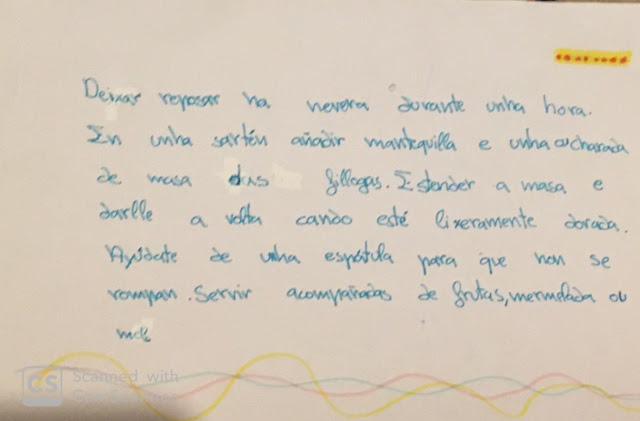 Deixar reposar na nevera durante unha hora.
En unha sartén añadir mantequilla e unha cucharada
de masa das fillogas. Estender a masa e
darlle a volta cando esté lixeramente dorada.
Ayúdate de unha espátula para que non se
rompan. Servir acompañadas de frutas, mermelada ou
mel
CS Scanned with